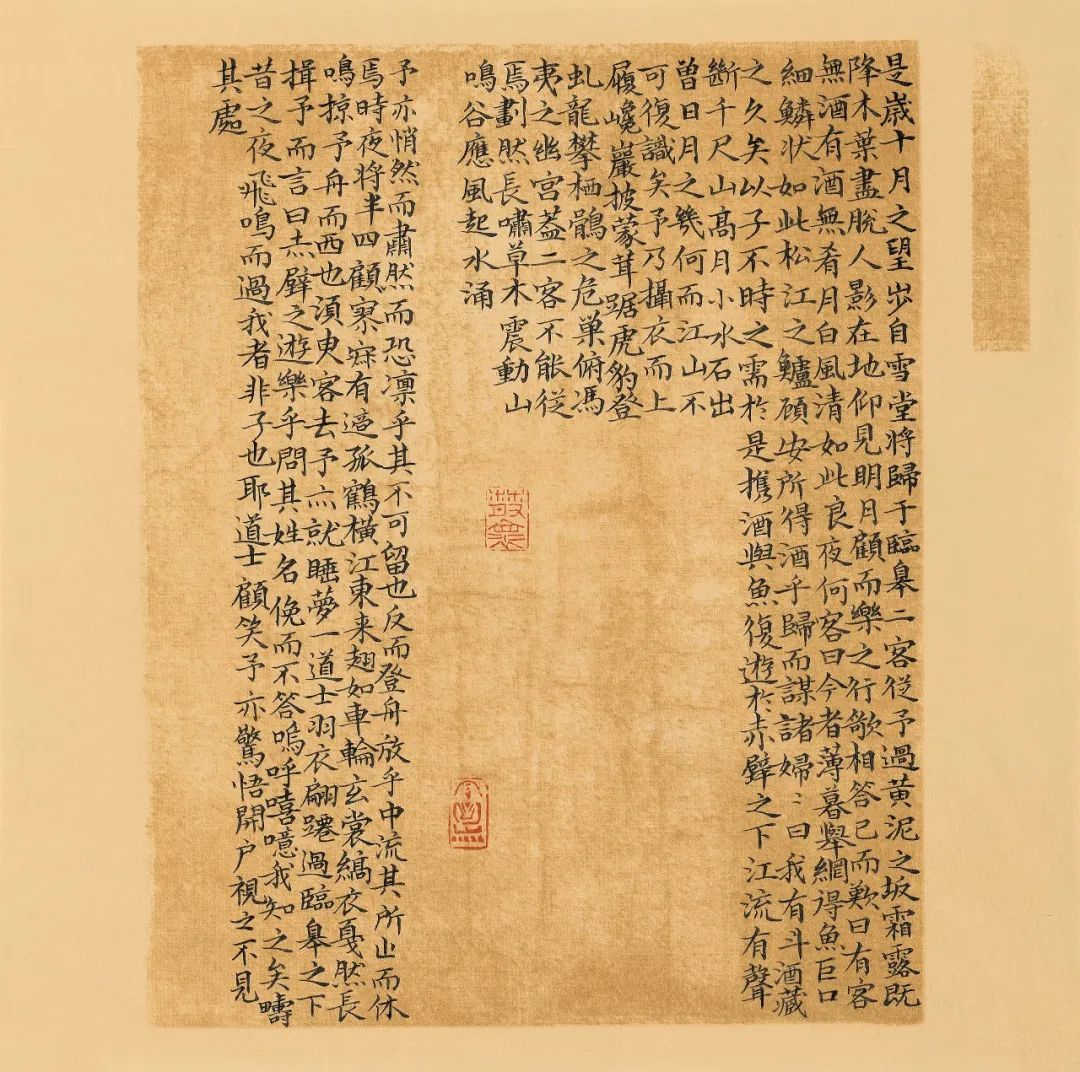 是歲十月之望步自雪堂将歸于臨皋二客從予過黃泥之坂霜露既
降木葉盡脫人影在地仰見明月顧而樂之行歌相答已而歎曰有客
無酒有酒無肴月白風清如此良夜何客曰今者薄暮舉網得魚巨口
細鱗狀如此松江之鱸顧安所得酒乎歸而謀諸婦〻曰我有斗酒藏
之久矣以子不時之需於是携酒與魚復遊於赤壁之下江流有聲
斷千尺山高月小水石出
曾日月之幾何而江山不
可復識矣予乃攝衣而上
履巉巖披蒙茸踞虎豹登
虬龍攀栖鶻之危巢俯馮
夷之幽宮蓋二客不能從
焉劃然長嘯草木震動山
鳴谷應風起水涌
予亦悄然而肅然而恐凛乎其不可留也反而登舟放乎中流其所止而休
焉時夜将半四顧寮寂有適孤鶴橫江東来翅如車輪玄裳縞衣戛然長
鳴掠予舟而西也須臾客去予亦就睡夢一道士羽衣翩躚過臨皋之下
揖予而言曰赤壁之遊樂乎問其姓名俛而不答嗚呼嘻噫我知之矣疇
昔之夜飛鳴而過我者非子也耶道士顧笑予亦驚悟開户視之不見
其處